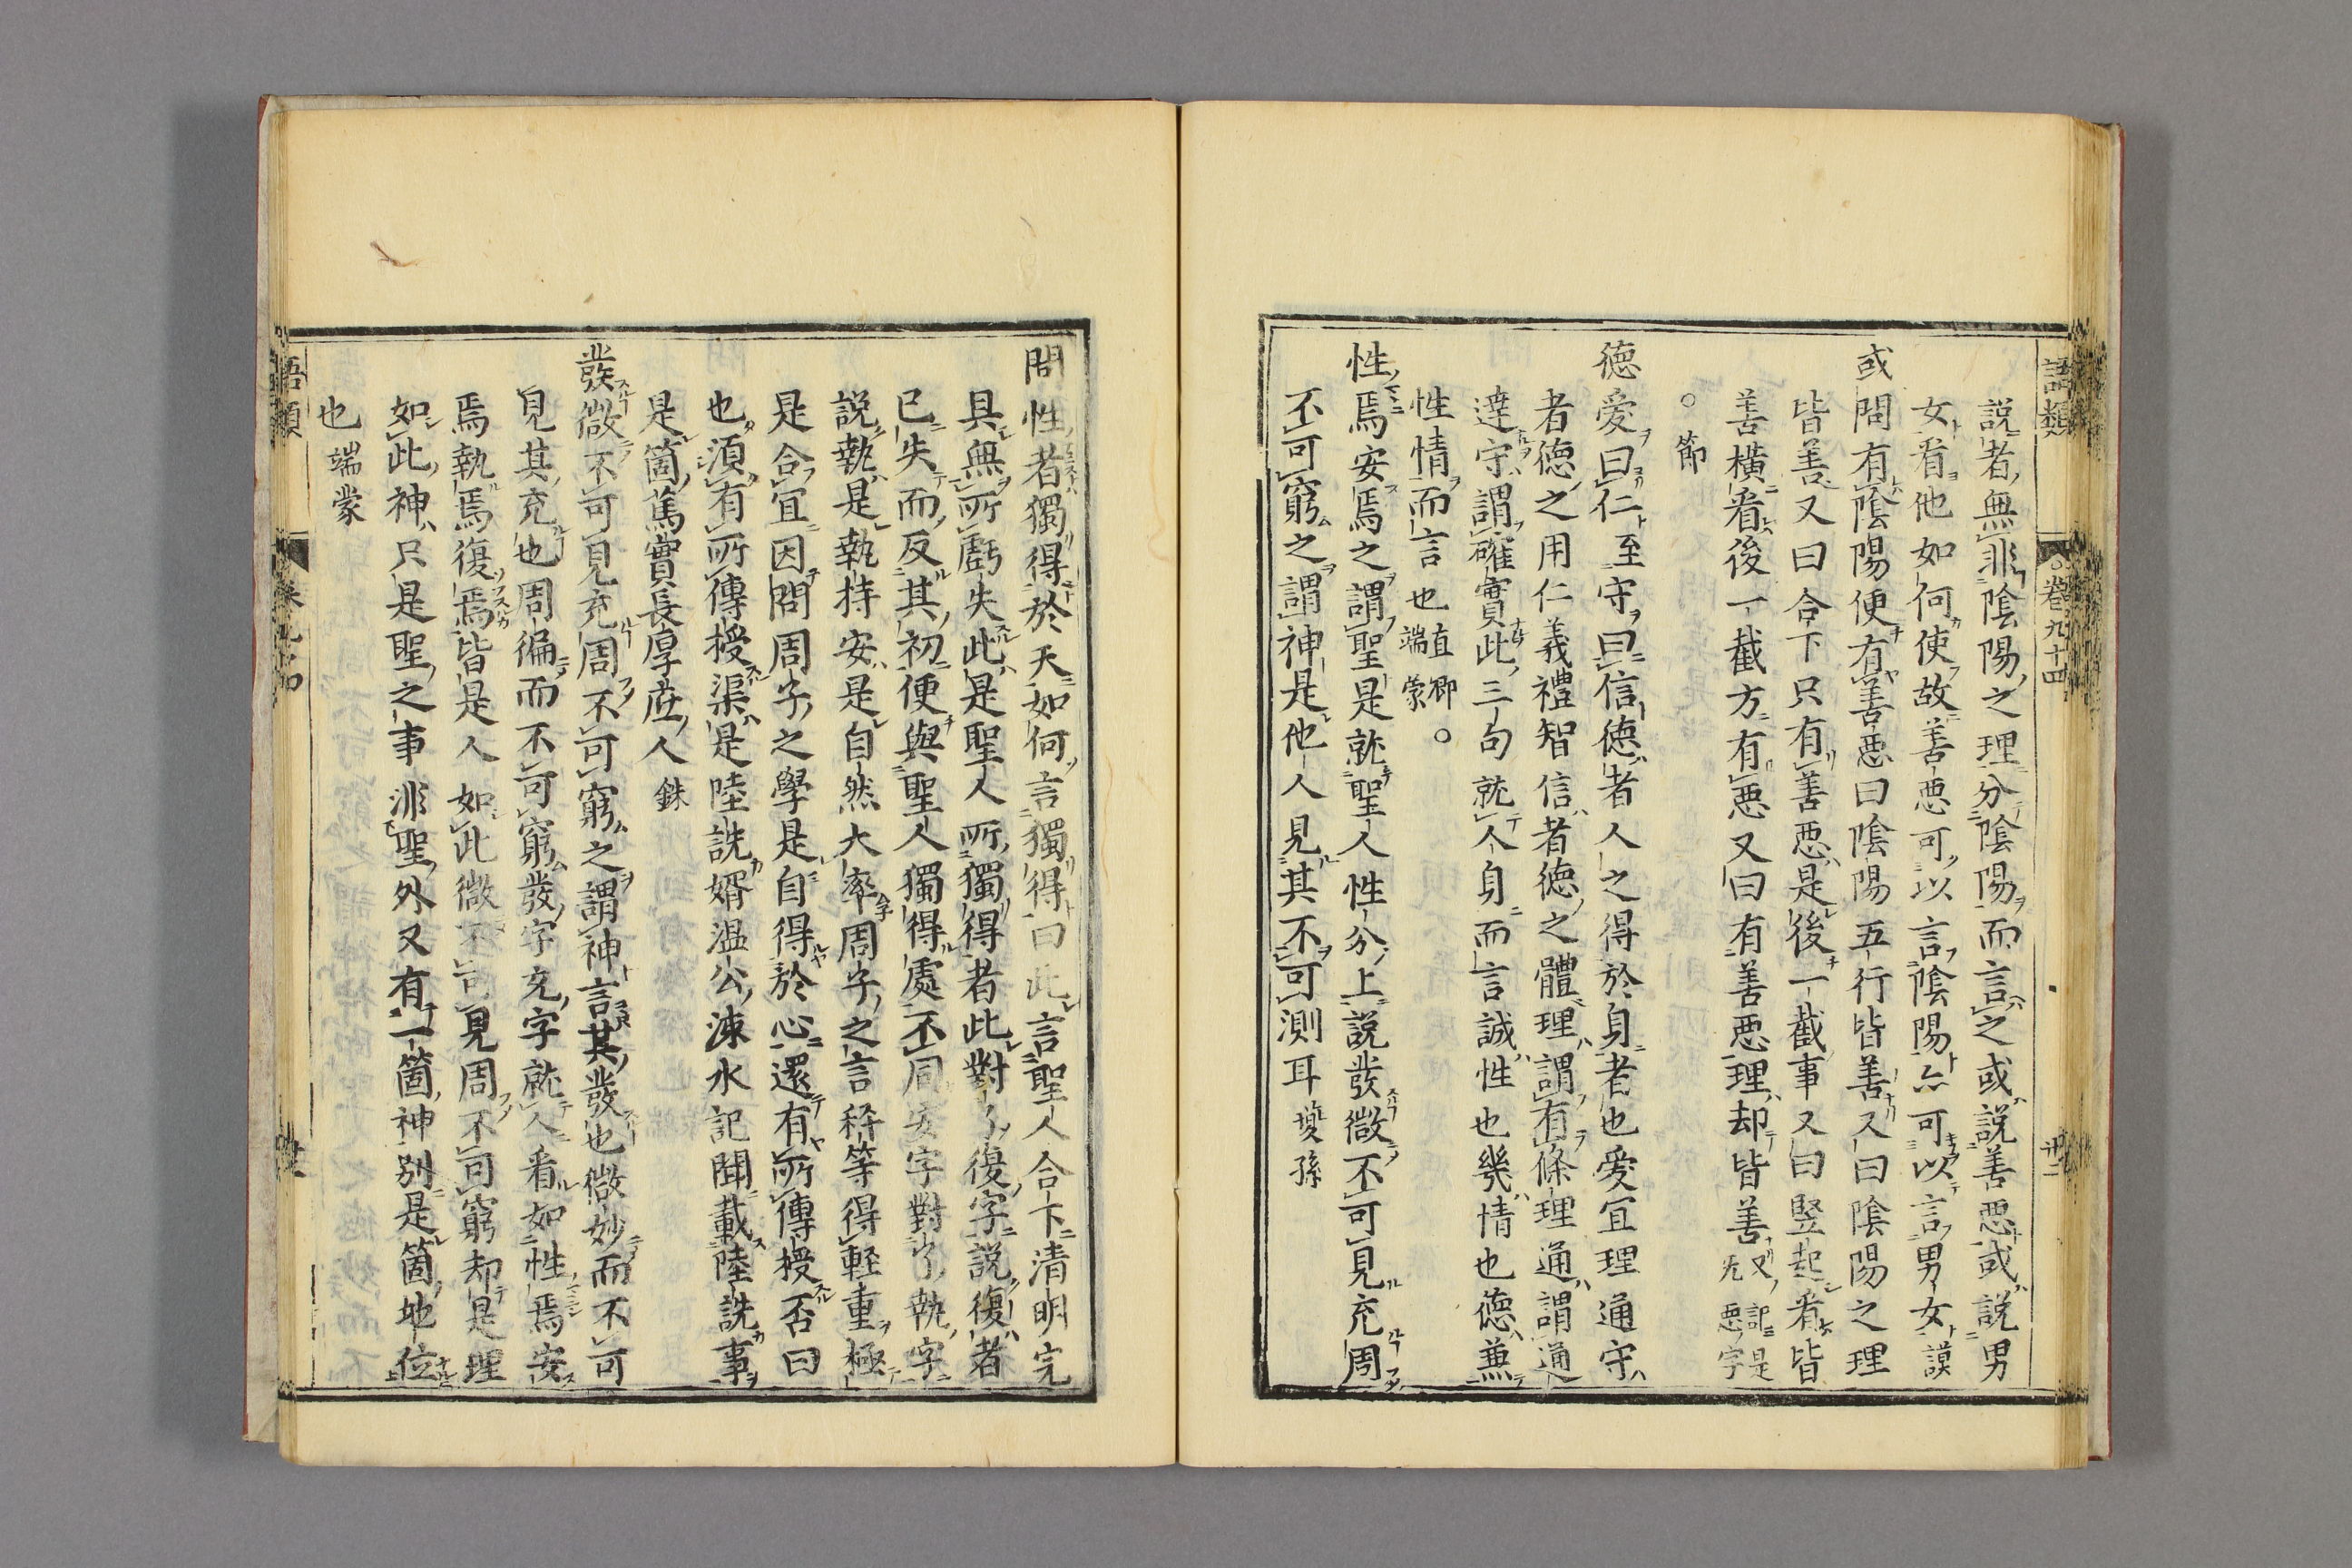 語類 卷九十四 卅二
説者無非陰陽之理分陰陽而言之或説善惡或説男
女看他如何使故善惡可以言陰陽亦可以言男女謨
或問有陰陽便有善惡曰陰陽五行皆善又曰陰陽之理
皆善又曰合下只有善惡是後一截事又曰竪起看皆
善橫看後一截方有惡又曰有善惡理却皆善又記是无惡字
○節
德愛曰仁至守曰信德者人之得於身者也愛宜理通守
者德之用仁義禮智信者德之體理謂有條理通謂通
達守謂確實此三句就人身而言誠性也幾情也德兼
性情而言也直卿端蒙○
性焉安焉之謂聖是就聖人性分上説發微不可見充周
不可窮之謂神是他人見其不可測耳䕫孫
問性者獨得於天如何言獨得曰此言聖人合下清明完
具無所虧失此是聖人所獨得者此對了復字説復者
已失而反其初便與聖人獨得處不同安字對了執字
説執是執持安是自然大率周子之言秤等得輕重極
是合宜因問周子之學是自得於心還有所傳授否曰
也須有所傳授渠是陸詵婿溫公涑水記聞載陸詵事
是箇篤實長厚㡳人銖
發微不可見充周不可窮之謂神言其發也微妙而不可
見其充也周徧而不可窮發字充字就人看如性焉安
焉執焉復焉皆是人如此微不可見周不可窮却是理
如此神只是聖之事非聖外又有一箇神別是箇地位
也端蒙
語類